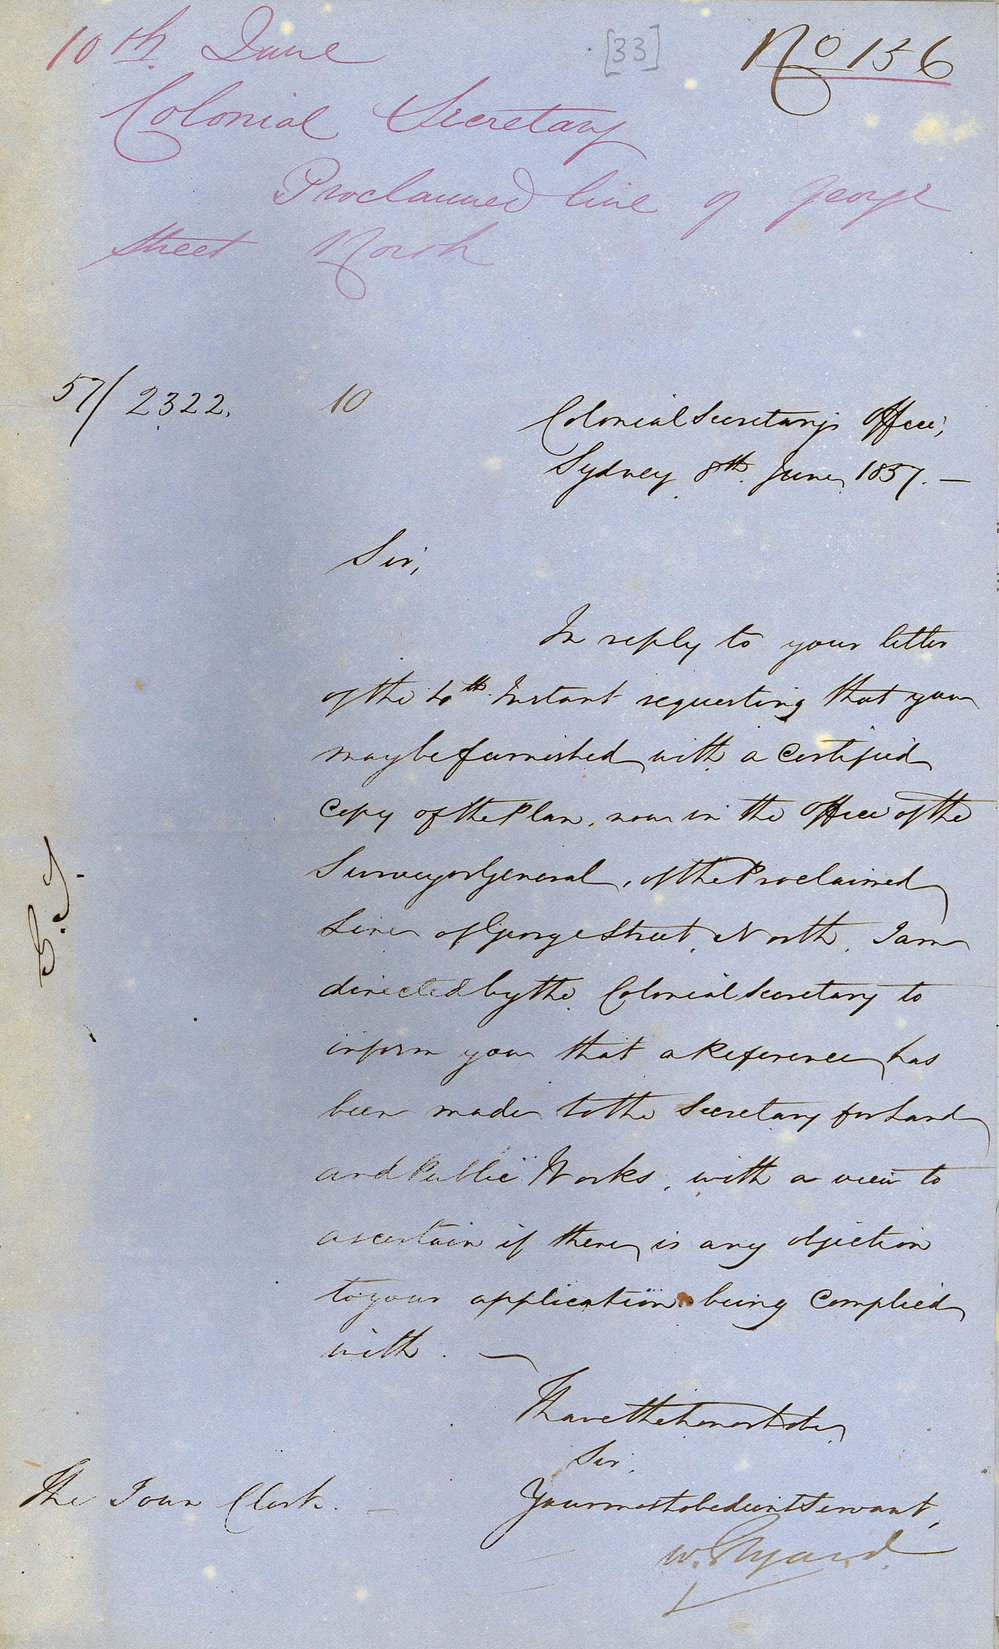 10th June
[33]
No 156
Colonial Secretary
Proclaimed line of George
Street North
57/2322.
10
Colonial Secretary's Office,
Sydney 8th June, 1857. —
Sir,
In reply to your letter
of the 4th Instant requesting that you
may be furnished with a Certified
Copy of the Plan, now in the Office of the
Surveyor General, of the Proclaimed
Line of George Street, North, I am
directed by the Colonial Secretary to
inform you that a Reference has
been made to the Secretary for Land
and Public Works, with a view to
ascertain if there is any objection
to your application being Complied
with. —
I have the honor to be,
Sir,
Your most obedient Servant,
W. Elyard
The Town Clerk. —